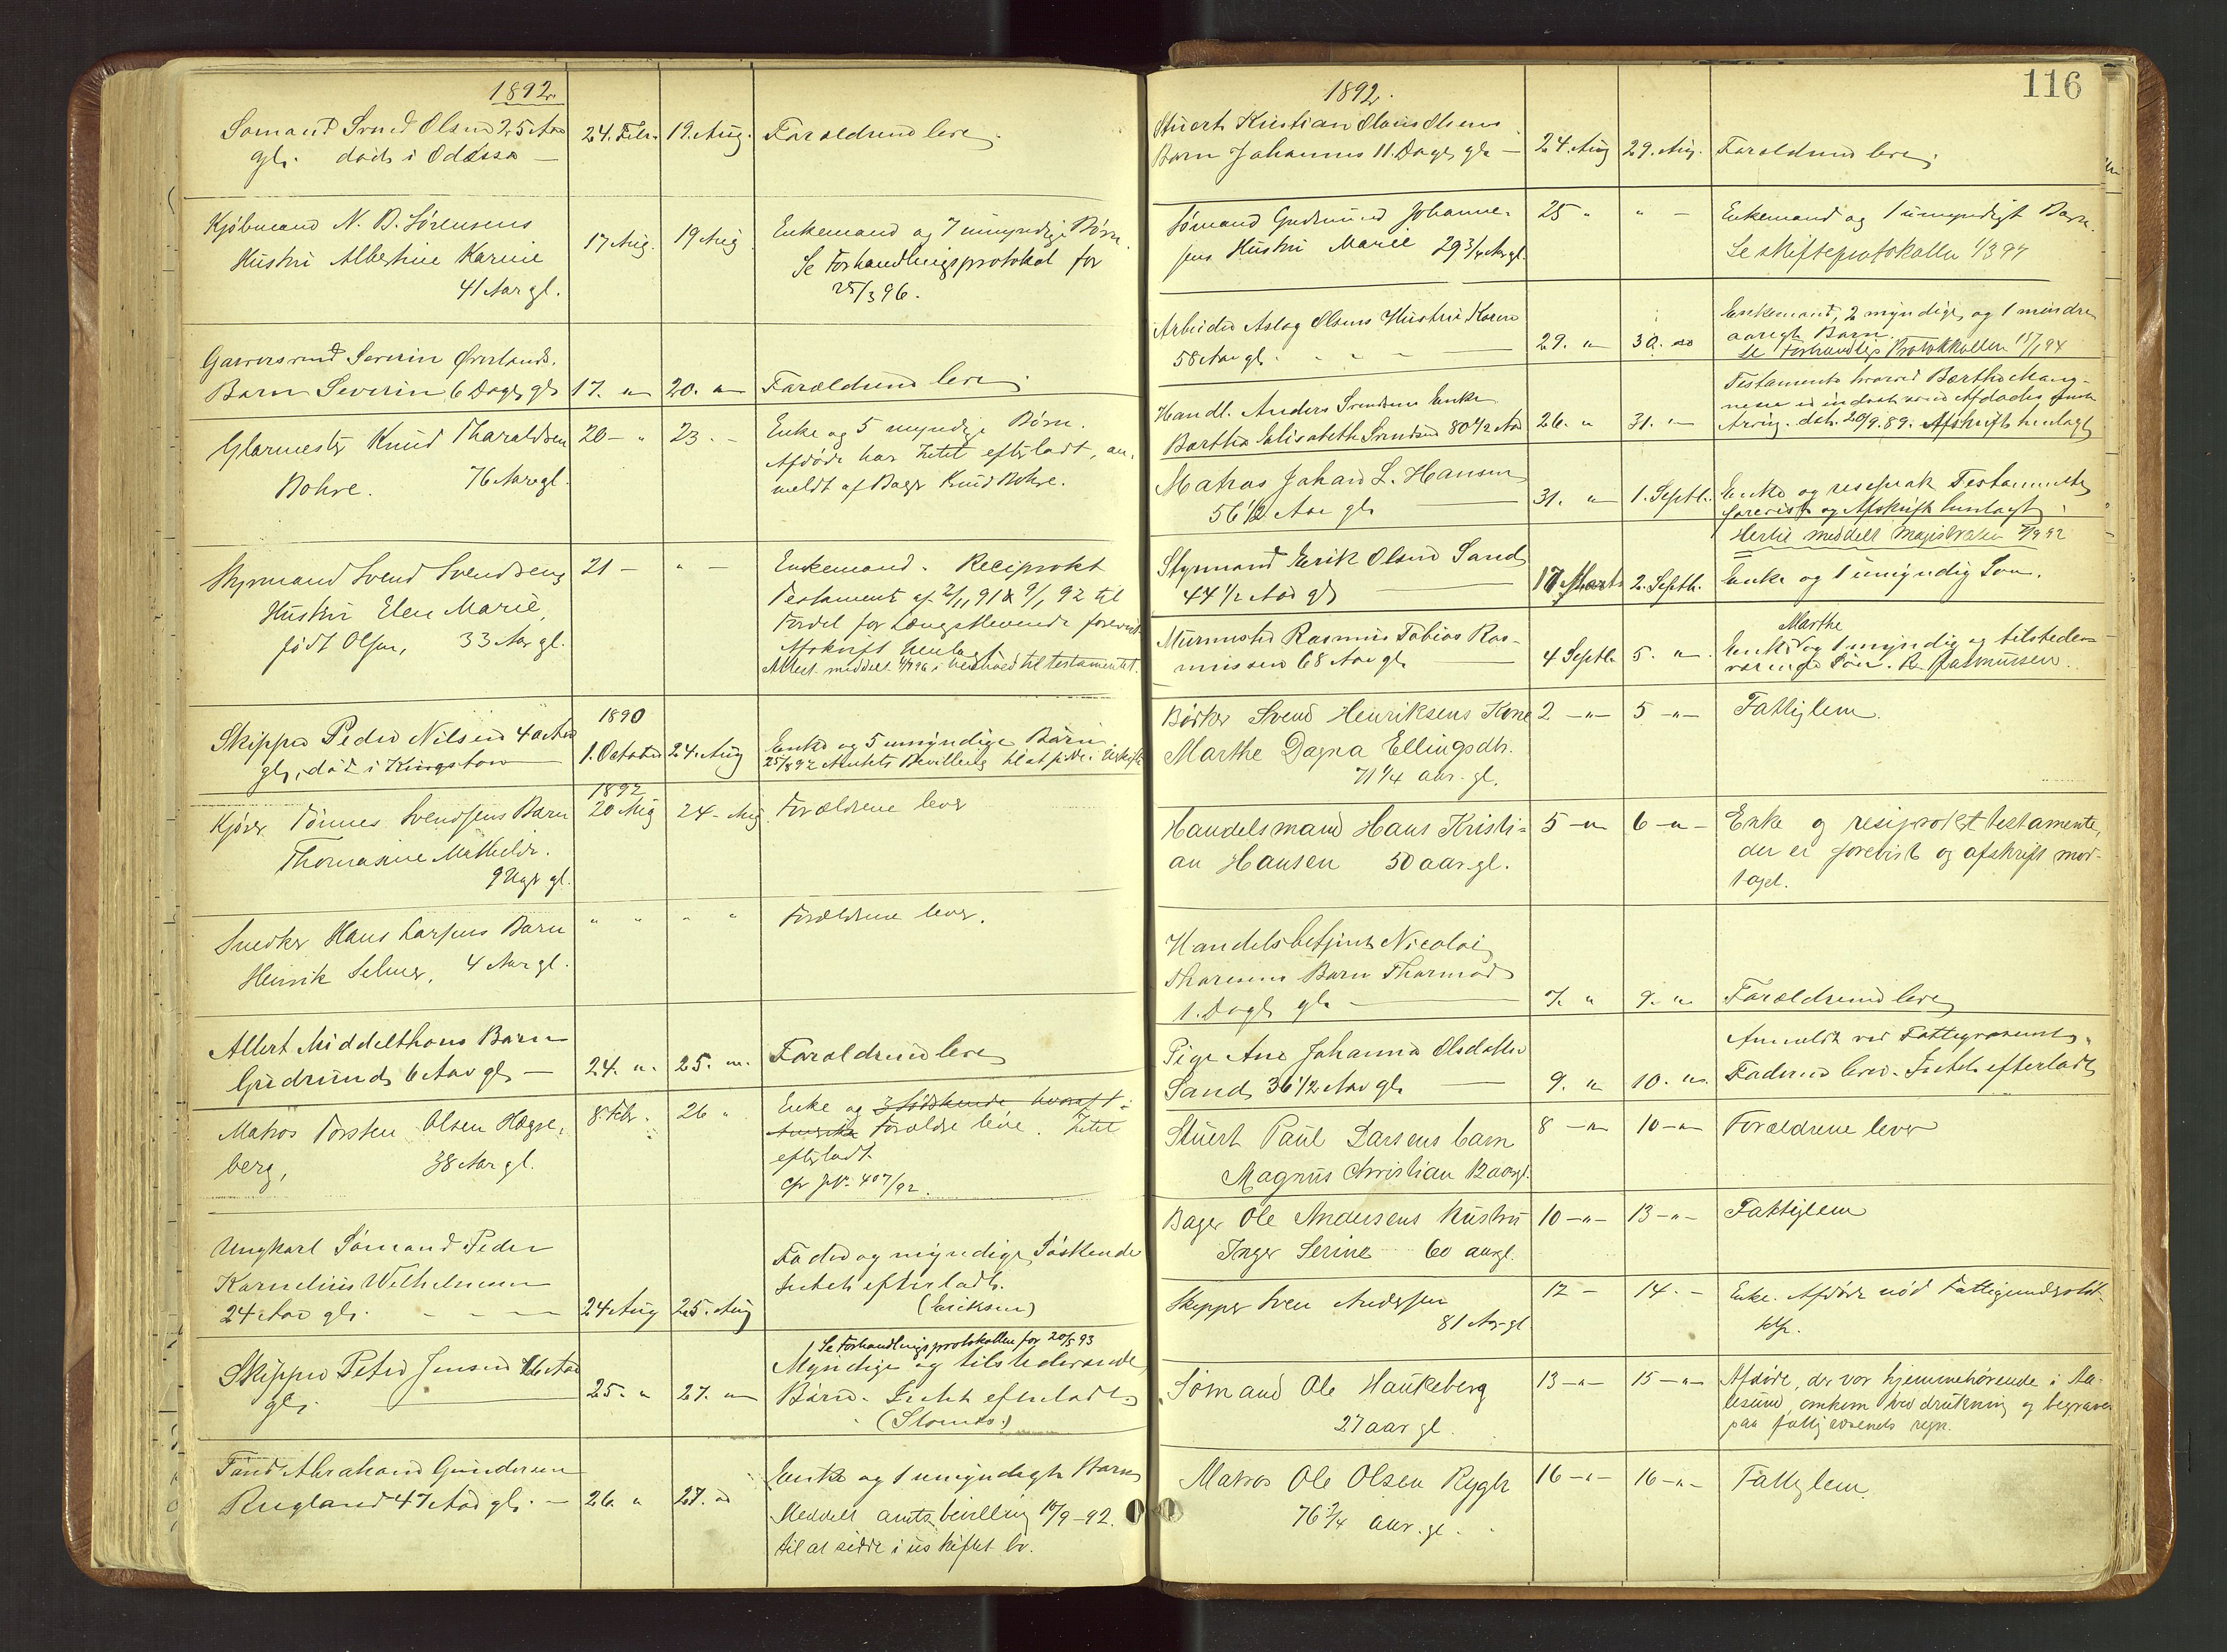 1892.
Sømand Svend Olsen 25 Aar
gl. død i Odessa —
24. Febr. 19. Aug. Forældrene lever.
Kjøbmand N. B. Sørensens
Hustru Albertine Karine
41 Aar gl.
17 Aug. 19 Aug
Enkemand og 7 umyndige Børn.
Se Forhandlingsprotokol for
25/3 96.
Garversvend Severin Øverlands
Barn Severin 6 Dage gl.
17. " 20. " Forældrene lever
Glarmester Knud Tharaldsen
Bohre. 76 Aar gl.
20 — " 23. —
Enke og 5 myndige Børn.
Afdøde har Intet efterladt, an-
meldt af Bager Knud Bohre.
Styrmand Svend Svendsens
Hustru Elen Marie,
født Olsen, 33 Aar gl.
21 — " —
Enkemand. Reciprokt
Testament af 2/11 91 & 9/1 92 til
Fordel for Længstlevende forevist
Afskrift henlagt
Attest meddelt i henhold til testamentet.
Skipper Peder Nilsen 40 Aar
gl., død i Kingston
1890
1. October 24. Aug
Enke og 5 umyndige Børn
25/8 92 Amtets Bevilling til at sidde i Uskifte
Kjører Tønnes Svendsens Barn
Thomasine Mathilde.
9 Uger gl.
1892
20 Aug 24. Aug Forældrene lever
Snedker Hans Larsens Barn
Henrik Selmer, 4 Aar gl.
" " " " Forældrene lever.
Albert Middelthons Barn
Gudrund 6 Aar gl. —
24. " 25. " Forældrene lever
Matros Torsten Olsen Hegre-
berg, 38 Aar gl.
8. Febr. 26 "
Enke og 3 Sødskende hvoraf 1 i
Amerika Forældre leve. Intet
efterladt.
Cfr JN. 407/92.
Ungkarl Sømand Peder
Kornelius Wilhelmsen
24 Aar gl.
24 Aug 25. Aug
Fader og myndige Søskende
Intet efterladt.
(Eriksen)
Skipper Peter Jensen Aar
gl.
25. " 27. "
Se Forhandlingsprotokollen for 20/5 93
Myndige og tilstedeværende
Børn. Intet efterladt
Abraham Gundersen
Rugland 47 Aar gl. —
26. " 27. "
Enke og 1 umyndigt Barn
Meddelt amts bevilling 10/9-92.
til at sidde i uskiftet bo.
116
1892.
Stuert Kristian Olaus Olsens
Barn Johannes 11. Dage gl. —
24. Aug 29. Aug. Forældrene lever
Sømand Gudmund Johanne-
sens Hustru Marie 29 3/4 Aar gl.
25 " " —
Enkemand og 1 umyndigt Barn.
Se skifteprotokollen 1/3 94
Arbeider Aslag Olsens Hustru Karen
58 Aar gl.
29. " 30. "
Enkemand, 2 myndige og 1 mindre
aarigt Barn
Se Forhandligs Protokollen 15/1 94
Handl. Anders Svendsens Enke
Barthe Elisabeth Svendsen 80 1/2 Aar
26. " 31. "
Testamente hvorved Barthe Mang-
nesen er indsat som Afdødes eneste
Arving. dat. 20/9. 89. Afskrift henlagt
Matros Johan L. Hansen
56 1/2 Aar gl.
31. " 1. Septb.
Enke og resiprok Testamente
forevist og Afskrift henlagt.
Herlie meddelt Magistraten
Styrmand Erik Olsen Sand
44 1/2 Aar gl.
17 Marts 2. Septb. Enke og 1 umyndig Søn.
Murmester Rasmus Tobias Ras-
mussen 68 Aar gl.
4 Septb. 5. "
Marthe
Enke og 1 myndig og tilstede-
værende Søn. R. Rasmussen.
Bødker Svend Henriksens Kone
Marthe Dagna Ellingsdtr.
71 1/4 aar. gl.
2 — " — 5 — " — Fattiglem.
Handelsmand Hans Kristi-
an Hansen 50 aar gl.
5 — " 6 — " —
Enke og resiprokt testamente,
der er forevist og afskrift mod-
taget.
Handelsbetjent Nicolai
Thoresens Barn Thormod
1. Dag gl. —
7. " 9. " Forældrene lever
Pige Ane Johanna Olsdatter
Sand 36 1/2 Aar gl.
9. " 10. "
Anmeldt ved Fattigvæsenet.
Faderen lever. Intet efterladt
Stuert Paul Larsens barn
Magnus Christian 12 aar gl.
8 — " 10 — " Forældrene lever
Bager Ole Andersens hustru
Inger Serine 60 aar gl.
10 — " — 13 — " — Fattiglem
Skipper Sven Andersen
81 Aar gl
12 — 14. —
Enke. Afdøde nød Fattigunderstøt-
telse.
Sømand Ole Haukeberg
27 aar gl.
13 — " — 15 — " —
Afdøde, der var hjemmehørende i Aa-
lesund, omkom ved drukning og begraves
paa fattigvæsenets regn.
Matros Ole Olsen Rygh
76 3/4 aar. gl.
16 — " — 16 — " — Fattiglem.